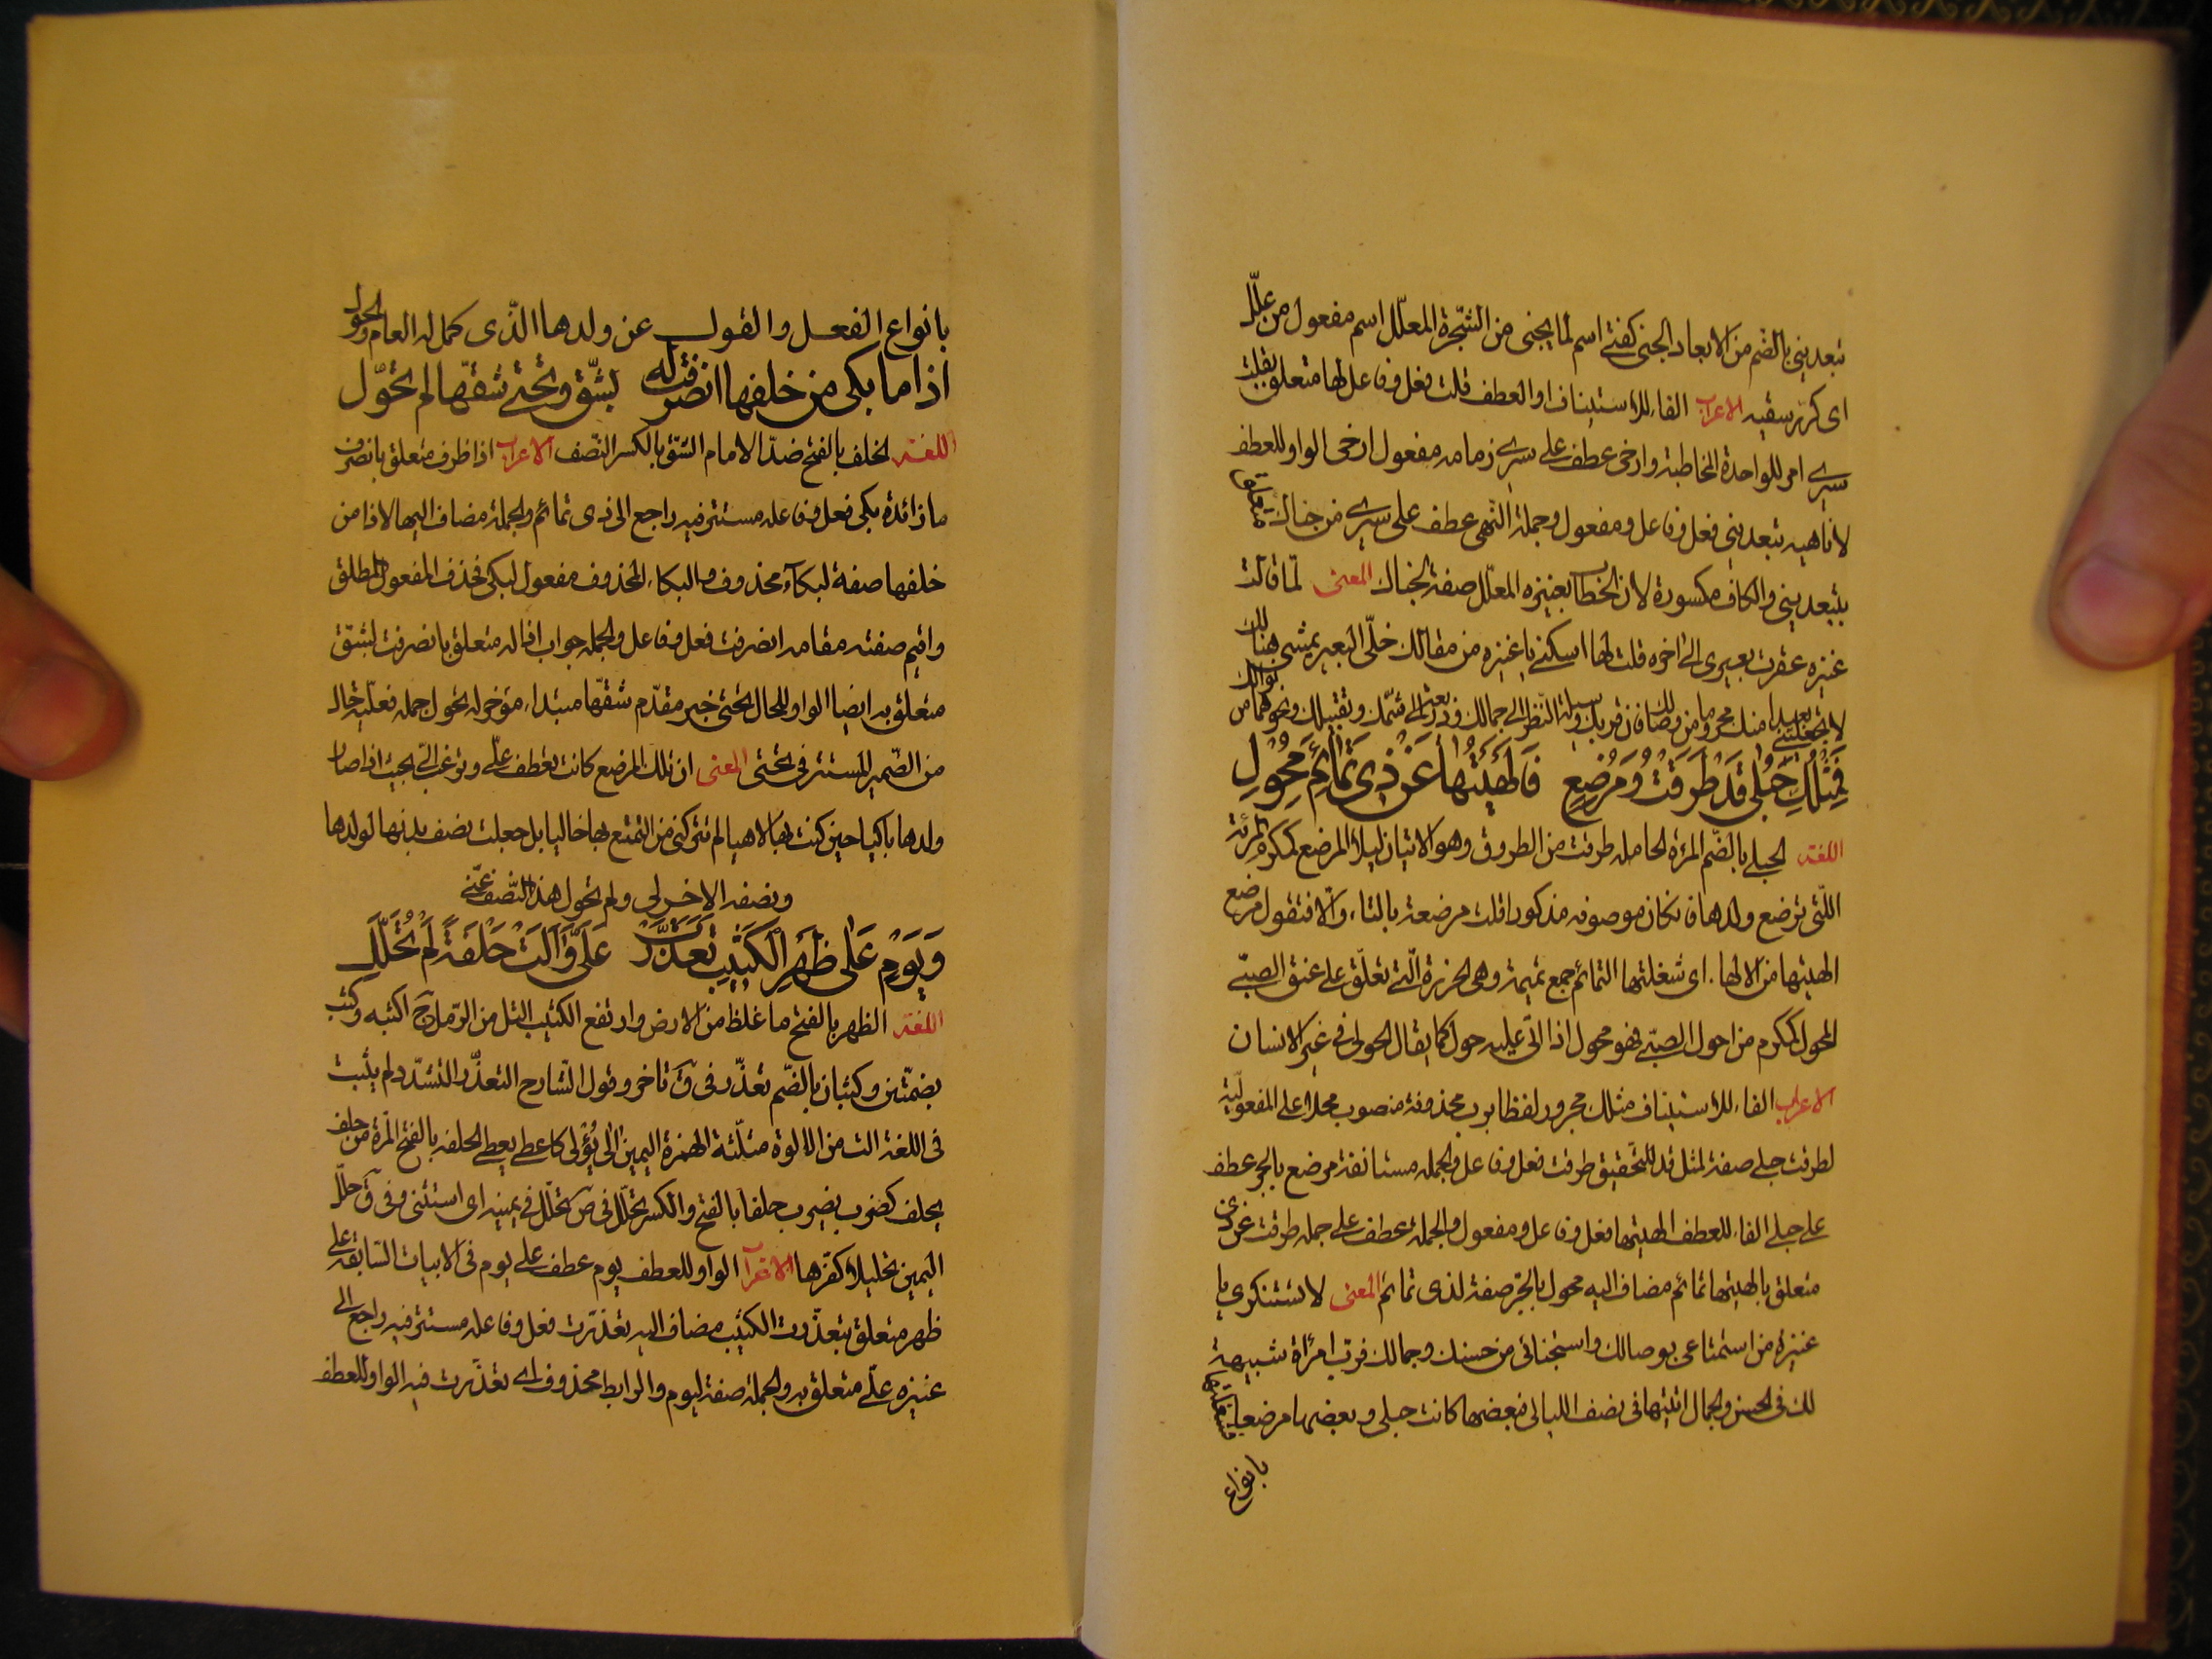 تبعدينى بالضم من الابعاد الجنى كفتى اسم لما يجنى من الشجرة المعلّل اسم مفعول من علّل
اى كرّر سقيه الاعراب الفاء للاستيناف او العطف قلت فعل وفاعل لها متعلق بقلت
سيرى امر للواحدة المخاطبة وارخى عطف على سيرى زمامه مفعول ارخى الواو للعطف
لا ناهيه تبعدينى فعل وفاعل ومفعول وجملة النهى عطف على سيرى من جناك متعلق
بتبعدينى والكاف مكسورة لان الخطاب بعنيزه المعلّل صفة لجناك المعنى لمّا قالت
عنيزه عقرت بعيرى الى اخره قلت لها اسكنى يا عنيزه من مقالك خلّى البعير يمشى هنالك
لا تجعلينى بعيدا منك محروما من وصالك فان قربك وسيلة النظر الى جمالك وذريعة الى شمّك وتقبيلك ونحوهما من نوالك
فَمِثْلِكِ حُبْلٰى قَدْ طَرَقْتُ وَمُرْضِعٍ فَاَلْهَيْتُهَا عَنْ ذِى تَمَائِمَ مُحْوِلِ
اللغة الحبلى بالضّم المرءة الحامله طرقت من الطروق وهو الاتيان ليلا المرضع كمكرم المرئة
اللّتى ترضع ولدها فان كان موصوفه مذكورا قلت مرضعة بالتاء والّا فتقول مرضع
الهيتها من الالهاء اى شغلتها التمائم جمع تميمة وهى الخرزة الّتى تعلّق على عنق الصبىّ
المحول كمكرم من احول الصبىّ فهو محول اذا اتى عليه حول كما يقال الحولى فى غير الانسان
الاعراب الفاء للاستيناف مثلك مجرور لفظا برب محذوفة منصوب محلا على المفعوليّة
لطرقت حبلى صفة لمثل قد للتحقيق طرقت فعل وفاعل والجمله مستانفة مرضع بالجر عطف
على حبلى الفاء للعطف الهيتها فعل وفاعل ومفعول والجملة عطف على جمله طرقت عن ذى
متعلق بالهيتها تمائم مضاف اليه محول بالجرّ صفة لذى تمائم المعنى لا تستنكرى يا
عنيزة من استمتاعى بوصالك واستجنائى من حسنك وجمالك فربّ امرأة شبيهة
لك فى الحسن والجمال اتيتها فى نصف الليالى فبعضها كانت حبلى وبعضها مرضعا فشغلتها
بانواع
بانواع الفعل والقول عن ولدها الذّى كمل له العام والحول
اذا ما بكى من خلفها انصرفت له بشقّ وتحتى شقّها لم تحوّل
اللغة الخلف بالفتح ضدّ الامام الشقّ بالكسر النّصف الاعراب اذا ظرف متعلق بانصرف
ما زائدة بكى فعل وفاعله مستتر فيه راجع الى ذى تمائم والجملة مضاف اليها لاذا من
خلفها صفة لبكآء محذوف والبكاء المحذوف مفعول لبكى فحذف المفعول المطلق
واقيم صفته مقامه انصرفت فعل وفاعل والجمله جواب اذا له متعلق بانصرفت بشقّ
متعلق به ايضا الواو للحال تحتى خبر مقدّم شقّها مبتداء مؤخر لم تحول جمله فعليّة حال
من الضّمير المستتر فى تحتى المعنى ان تلك المرضع كانت تعطف علّى وترغب الىّ بحيث اذا صار
ولدها باكيا حين كنت بها لاهيا لم تتركنى من التمتع بها خاليا بل جعلت نصف بدنها لولدها
ونصفه الاخر لى ولم تحول هذا النّصف عنّى
وَيَوْمٍ عَلٰى ظَهْرِ الْكَثِيْبِ تَعَذَّرَتْ عَلَىَّ وَآلَتْ حَلْفَةً لَمْ تُحَلَّلِ
اللغة الظهر بالفتح ما غلظ من الارض وارتفع الكثيب التل من الرّمل ج اكثبه وكثب
بضمّتين وكثبان بالضّم تعذّر فى ق تاخر وقول الشّارح التعذّر التشدّد لم يثبت
فى اللغة الت من الالوة مثلّثة الهمزة اليمين الٰى يُؤْلى كاعطى يعطى الحلفه بالفتح المرّة من حلف
يحلف كضرب يضرب حلفا بالفتح والكسر تحلّل فى ص تحلّل فى يمينه اى استثنى وفى ق حلّل
اليمين تحليلا كفّرها الاعراب الواو للعطف يوم عطف على يوم فى الابيات السّابقة على
ظهر متعلق بتعذّرت الكثيب مضاف اليه تعذّرت فعل وفاعله مستتر فيه راجع الى
عنيزه علّى متعلق به والجملة صفة ليوم والرابط محذوف اى تعذّرت فيه الواو للعطف